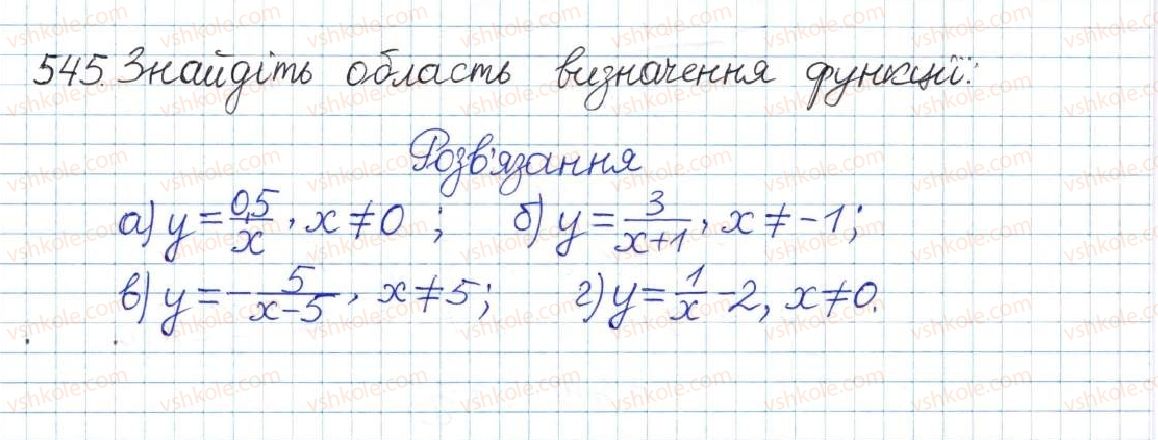 545. Знайдіть область визначення функції:
Розв'язання
а) y = 0,5/x, x ≠ 0 ; б) y = 3/(x+1), x ≠ -1;
в) y = -5/(x-5), x ≠ 5; г) y = 1/x - 2, x ≠ 0.